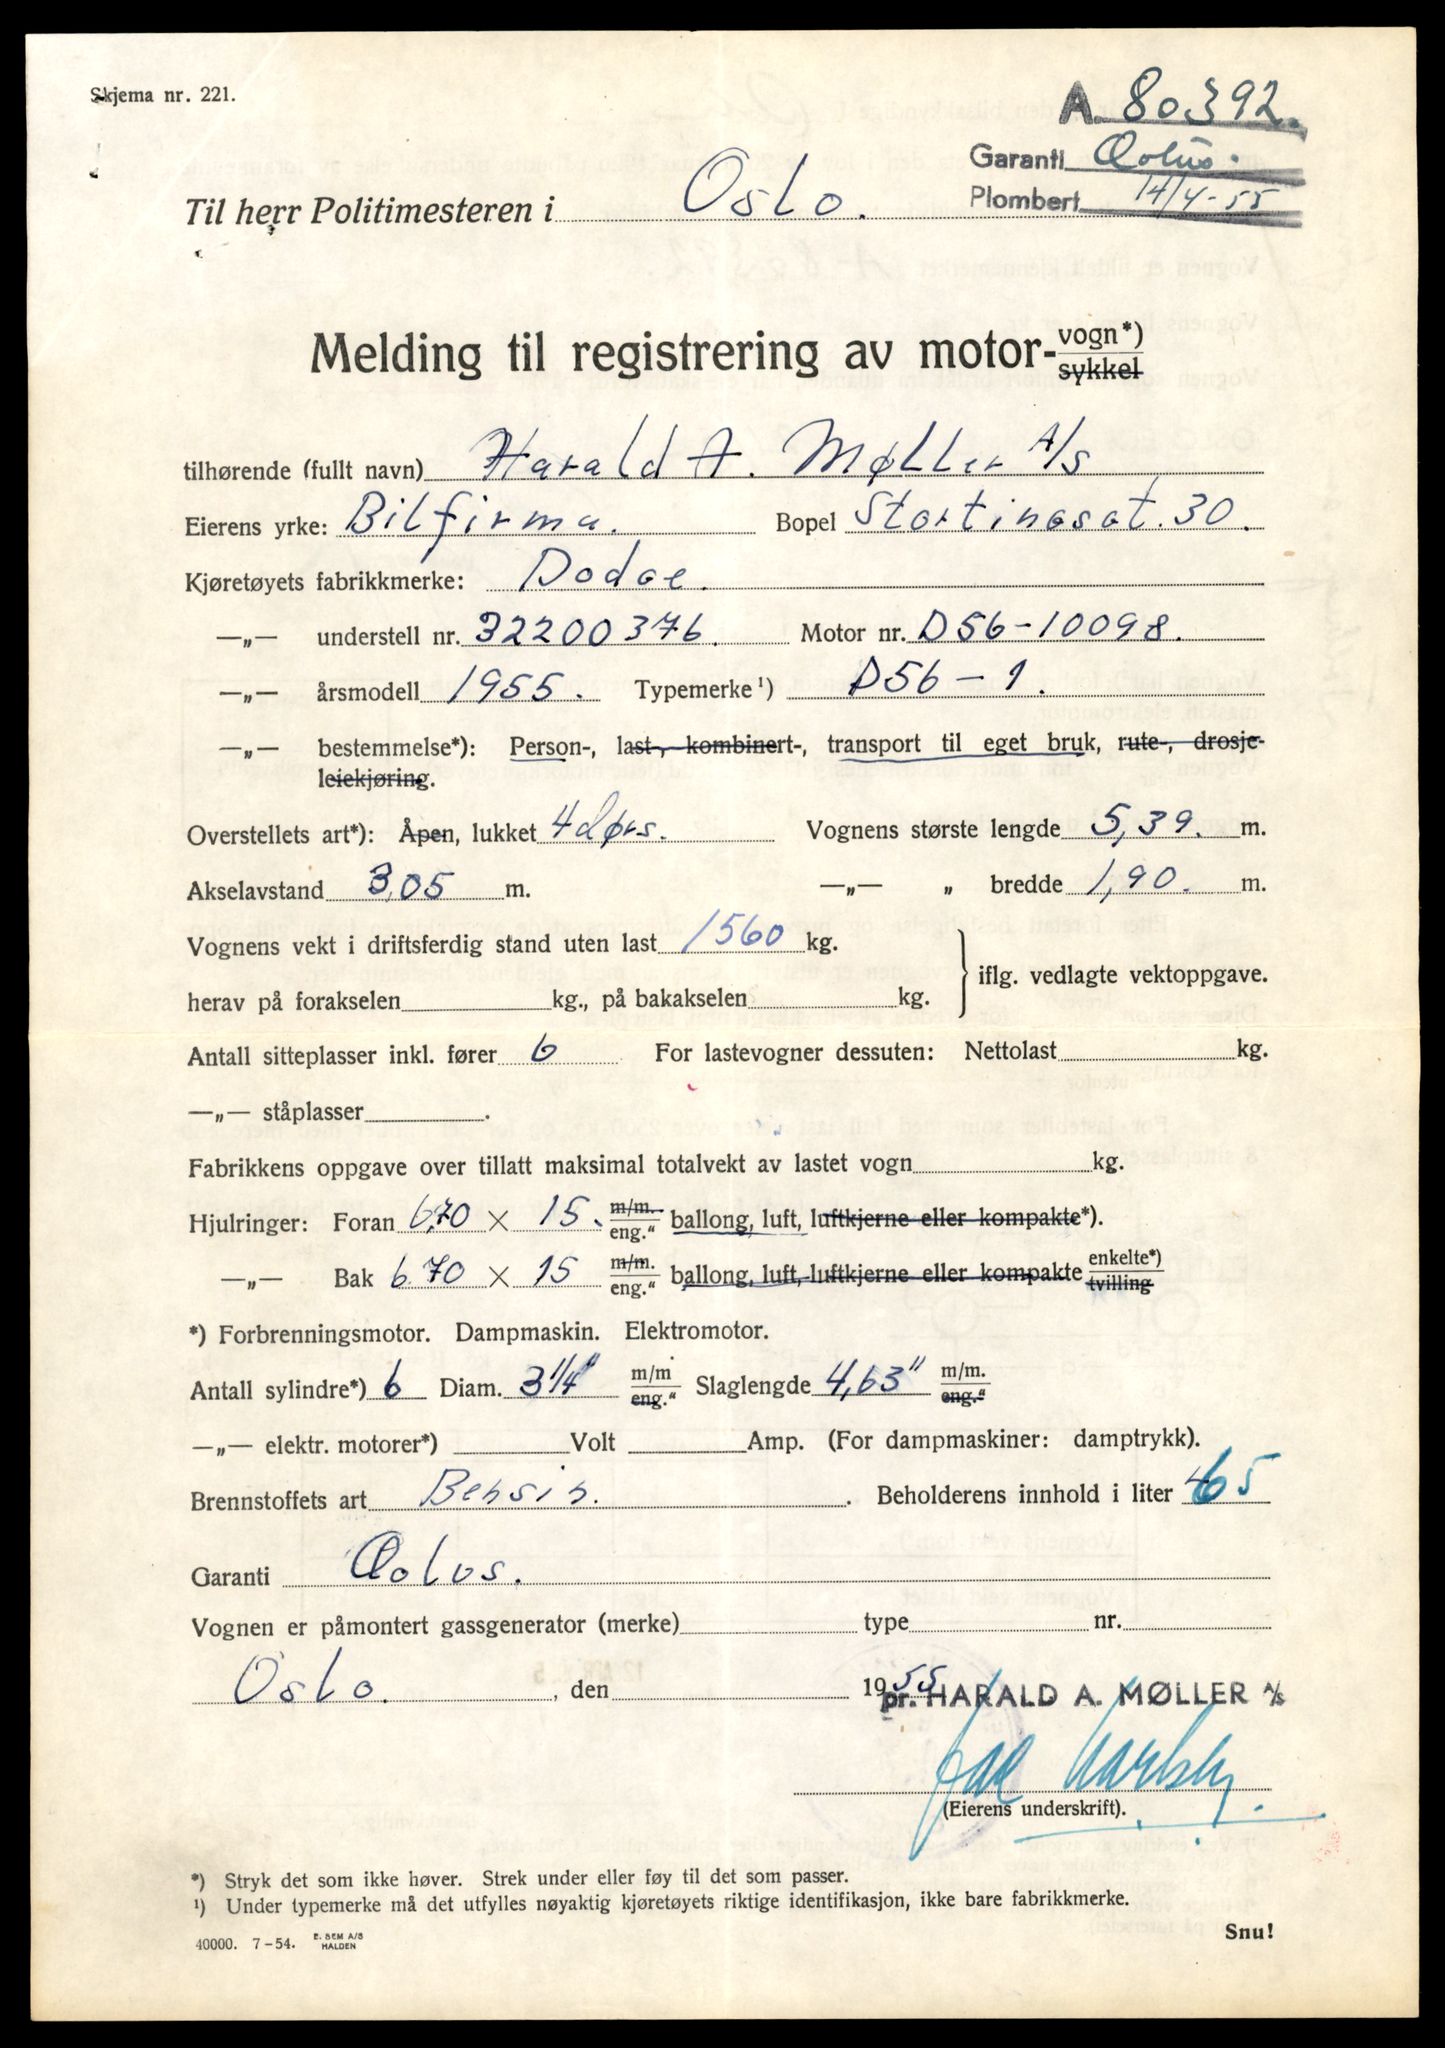 Skjema nr. 221.
A. 80392.
Garanti Æolus.
Plombert 14/4-55
Til herr Politimesteren i Oslo.
Melding til registrering av motor-vogn*)
sykkel
tilhørende (fullt navn) Harald A. Møller A/S
Eierens yrke: Bilfirma. Bopel Stortingsgt. 30.
Kjøretøyets fabrikkmerke: Dodge.
—„— understell nr. 32200376. Motor nr. D56-10098.
—„— årsmodell 1955. Typemerke¹) D56-1.
—„— bestemmelse*): Person-, last-, kombinert-, transport til eget bruk, rute-, drosje-
leiekjøring.
Overstellets art*): Åpen, lukket 4 dørs. Vognens største lengde 5,39. m.
Akselavstand 3,05 m. —„— „ bredde 1,90. m.
Vognens vekt i driftsferdig stand uten last 1560 kg.
iflg. vedlagte vektoppgave.
herav på forakselen kg., på bakakselen kg.
Antall sitteplasser inkl. fører 6 For lastevogner dessuten: Nettolast kg.
—„— ståplasser .
Fabrikkens oppgave over tillatt maksimal totalvekt av lastet vogn kg.
Hjulringer: Foran 6,70 × 15. m/m. eng.“ ballong, luft, luftkjerne eller kompakte*).
—„— Bak 6.70 × 15 m/m. eng.“ ballong, luft, luftkjerne eller kompakte enkelte*) tvilling
*) Forbrenningsmotor. Dampmaskin. Elektromotor.
Antall sylindre*) 6 Diam. 3 1/4" m/m eng.“ Slaglengde 4,63" m/m. eng.“
—„— elektr. motorer*) Volt Amp. (For dampmaskiner: damptrykk).
Brennstoffets art Bensin. . Beholderens innhold i liter 65
Garanti Æolus.
Vognen er påmontert gassgenerator (merke) type nr.
Oslo. , den 1955
pr. HARALD A. MØLLER A/S
(Eierens underskrift).
*) Stryk det som ikke høver. Strek under eller føy til det som passer.
¹) Under typemerke må det utfylles nøyaktig kjøretøyets riktige identifikasjon, ikke bare fabrikkmerke.
40000. 7-54. E. SEM A/S HALDEN
Snu!